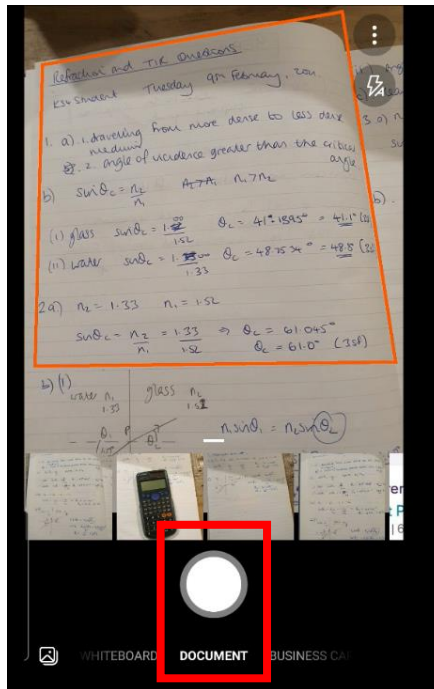 Refraction and TIR Questions.
KS4 Student Tuesday 9th February, 2021
1. a) 1. travelling from more dense to less dense
medium
2. angle of incidence greater than the critical
angle
b) sinθc = n2
n1 n1 > n2
(i) glass sinθc = 1.00 θc = 41.1395° = 41.1°
1.52
(ii) water sinθc = 1.00 θc = 48.7534° = 48.8
1.33
2a) n2 = 1.33 n1 = 1.52
sinθc = n2 = 1.33 ⇒ θc = 61.045°
n1 1.52 θc = 61.0° (3sf)
b) (i)
water n1 glass n2
1.33 1.52
θ1 P θ2
n1sinθ1 = n2sinθ2
3 a)
b).
WHITEBOARD DOCUMENT BUSINESS CA